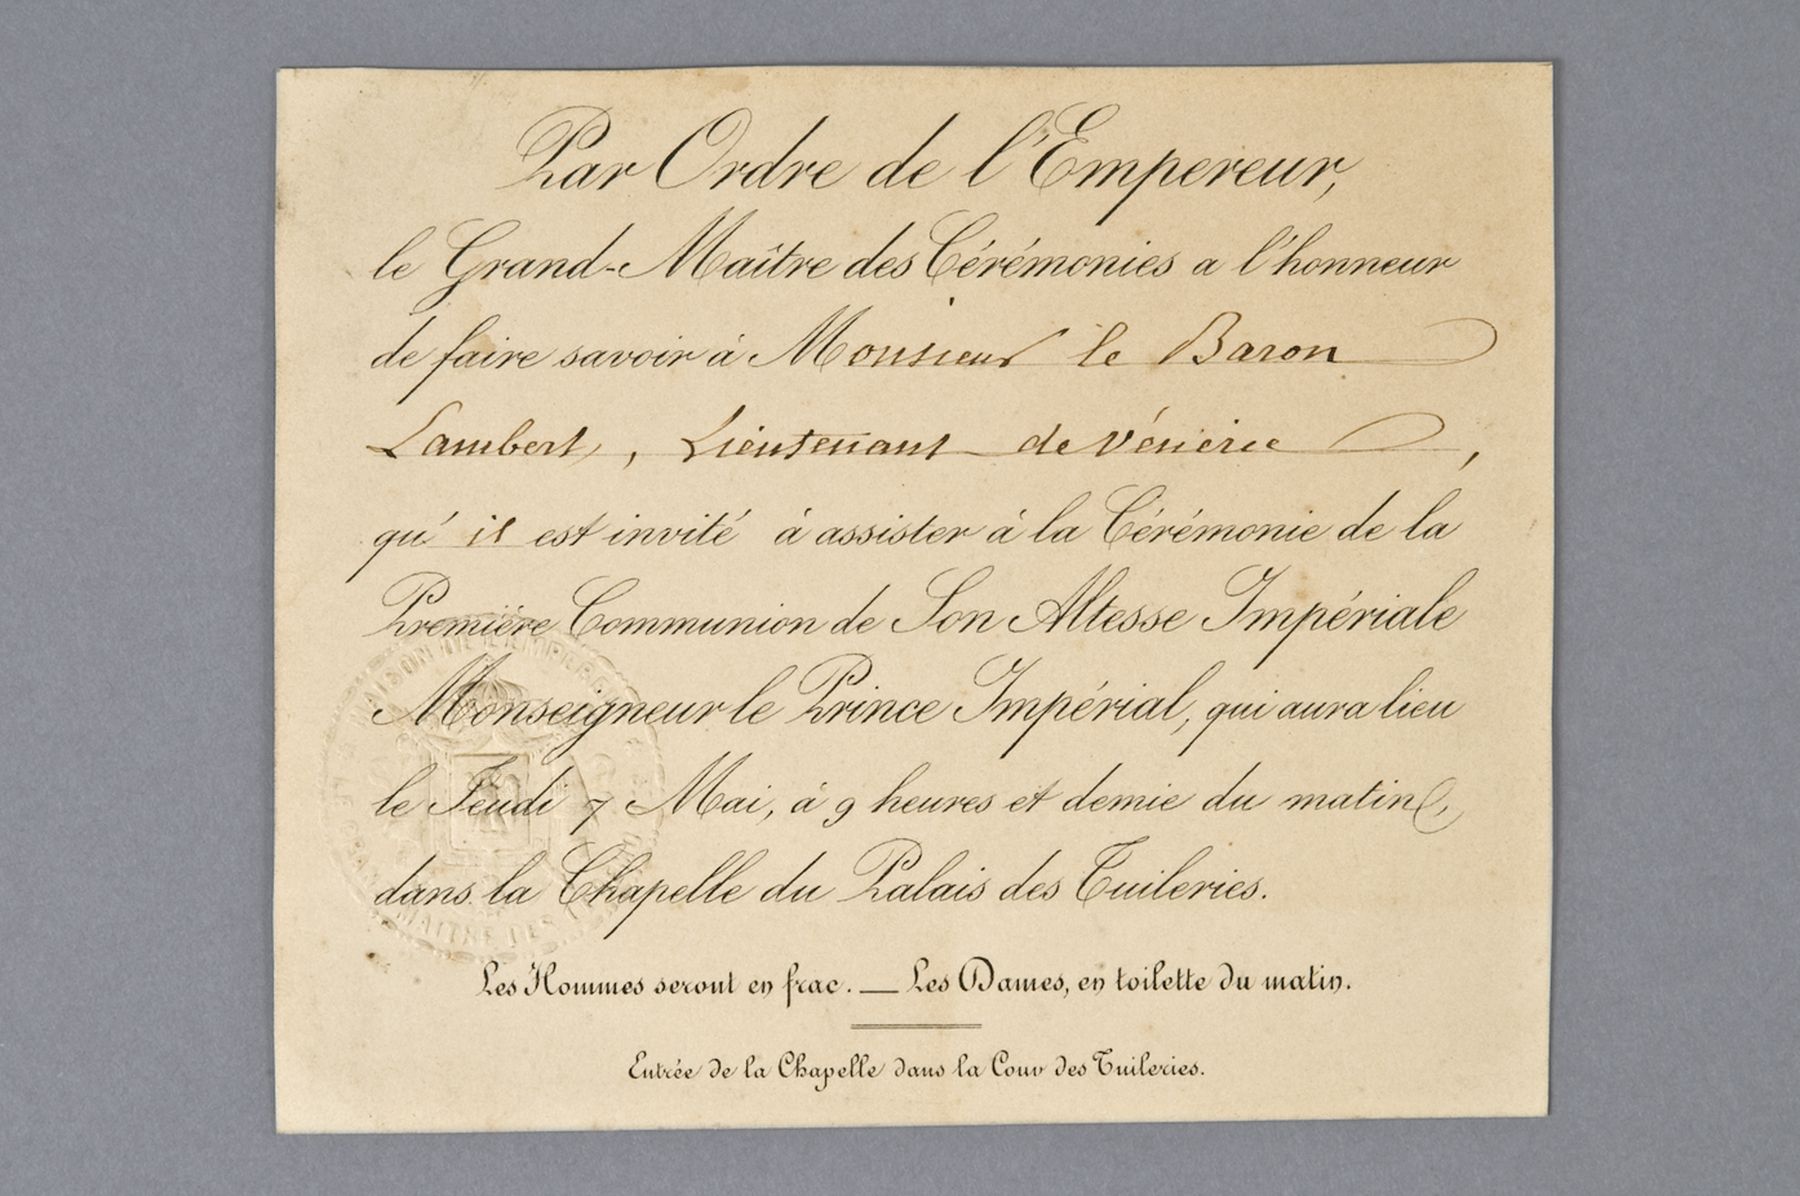 Par Ordre de l'Empereur,
le Grand-Maître des Cérémonies a l'honneur
de faire savoir à Monsieur le Baron
Lambert, Lieutenant de Vénerie,
qu'il est invité à assister à la Cérémonie de la
Première Communion de Son Altesse Impériale
Monseigneur le Prince Impérial, qui aura lieu
le Jeudi 7 Mai, à 9 heures et demie du matin,
dans la Chapelle du Palais des Tuileries.
Les Hommes seront en frac. — Les Dames, en toilette du matin.
Entrée de la Chapelle dans la Cour des Tuileries.
MAISON DE L'EMPEREUR
GRAND MAITRE DES